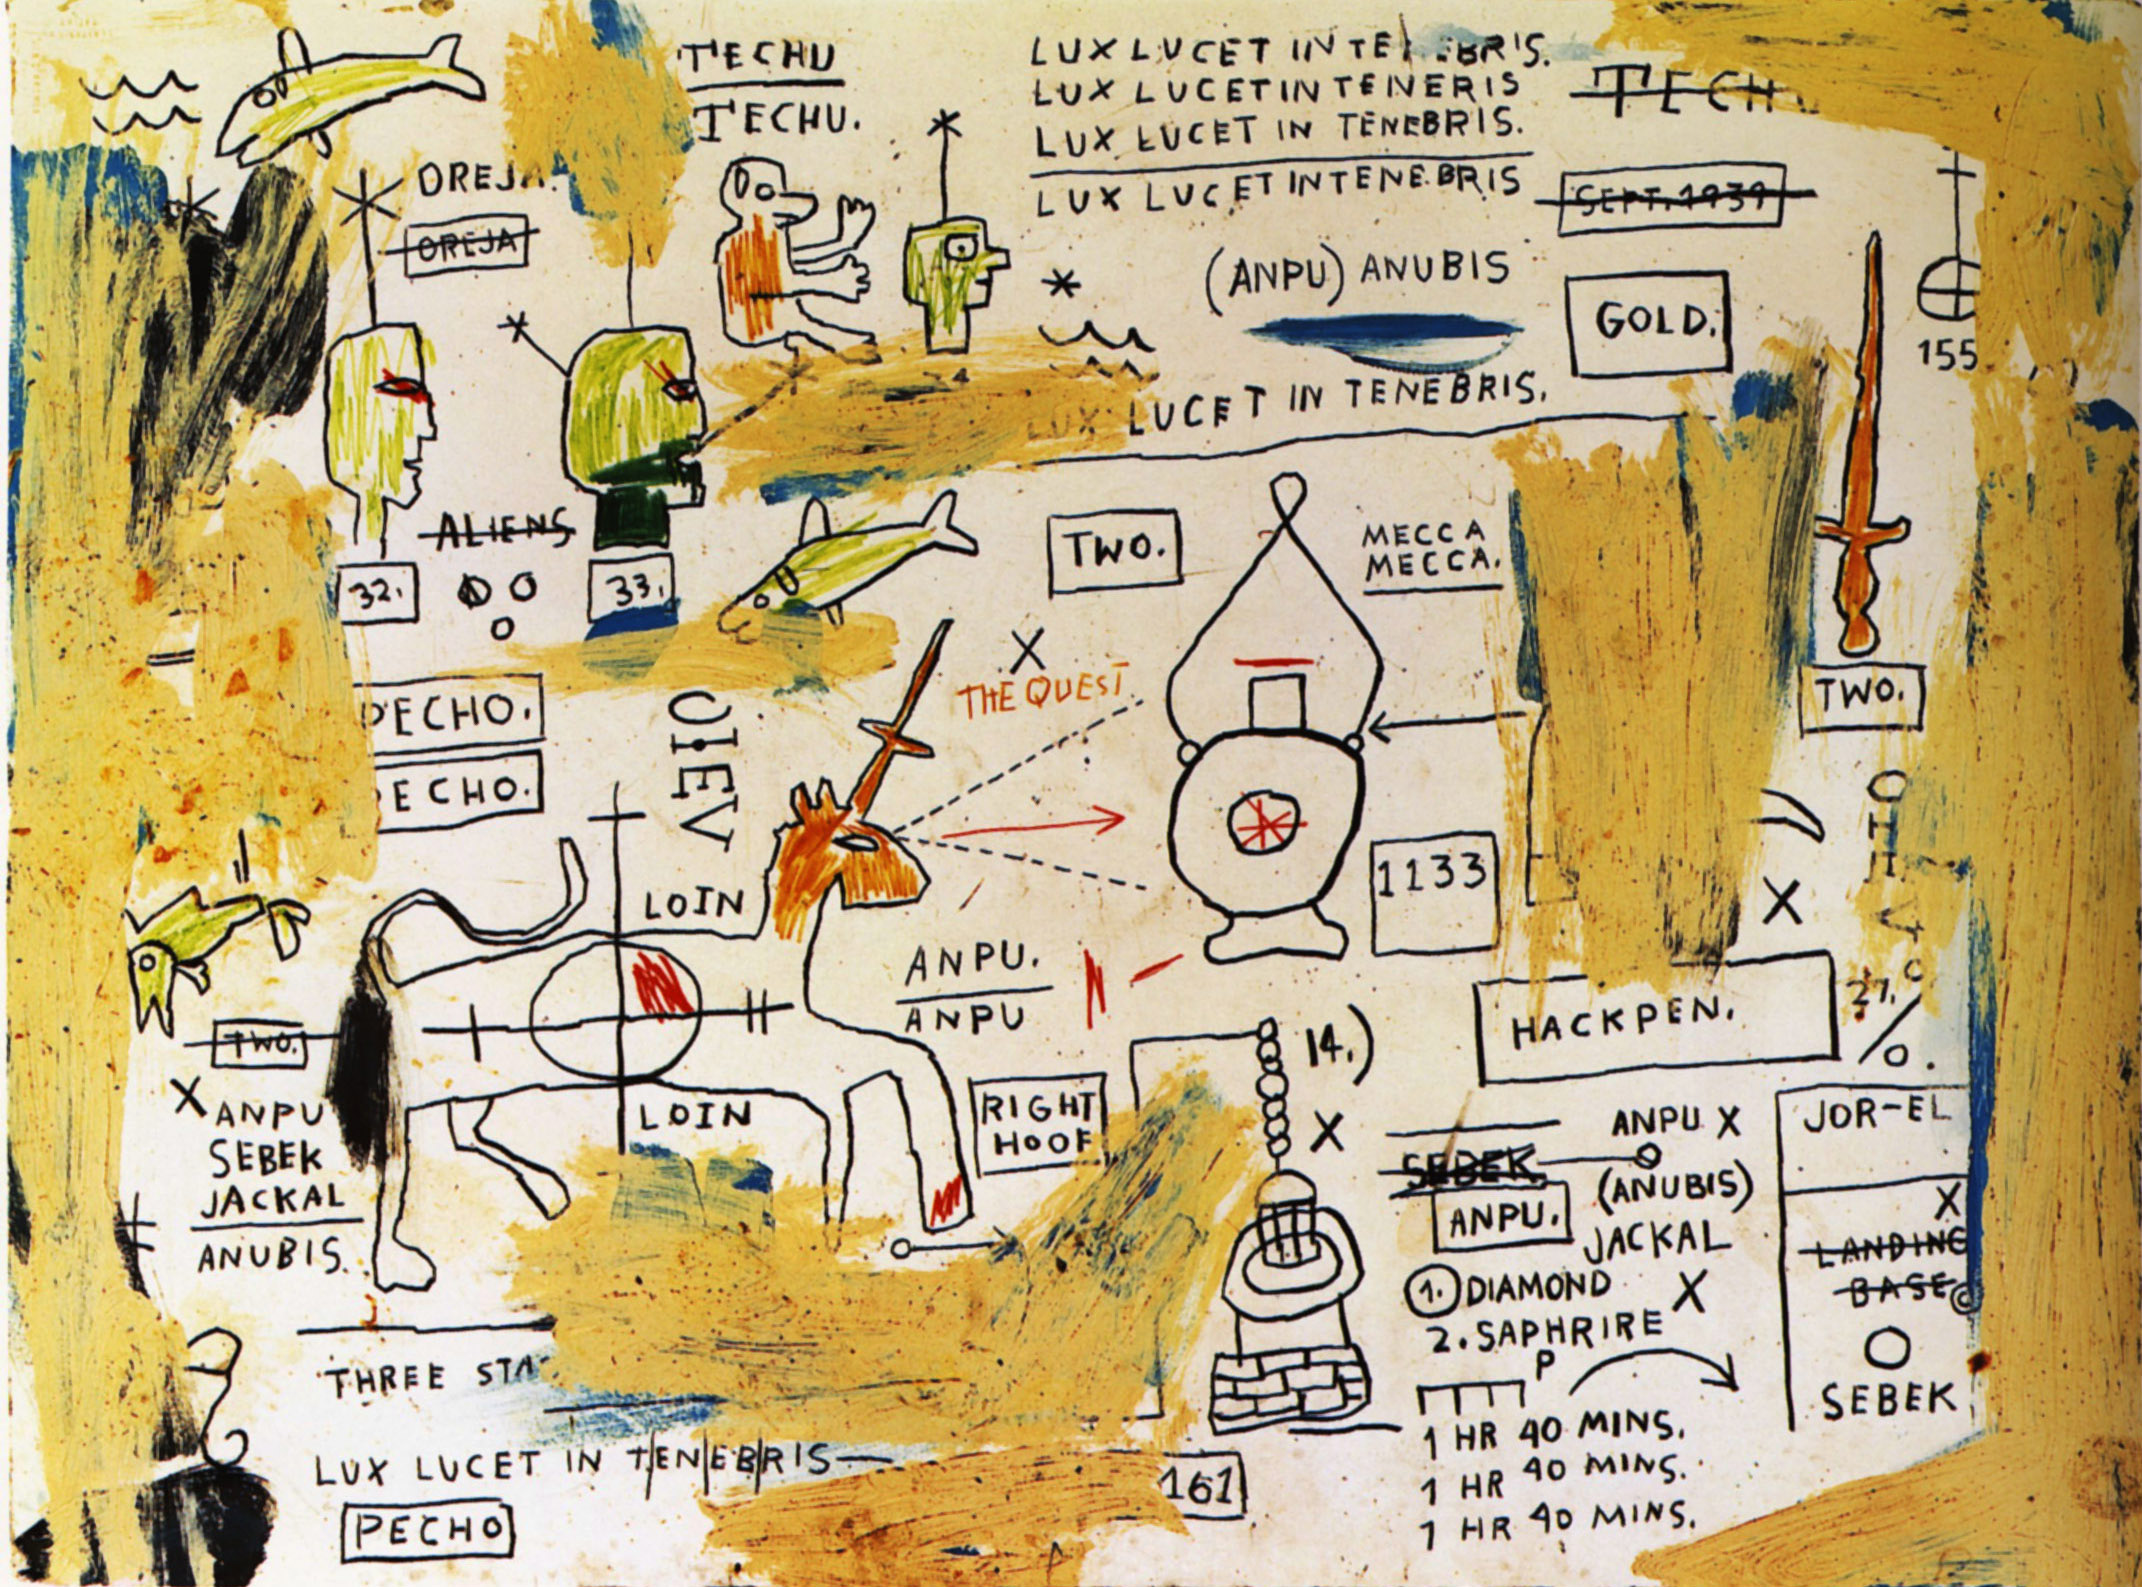 TECHU
TECHU.
LUX LUCET IN TE EBRIS.
LUX LUCET IN TENERIS
LUX LUCET IN TENEBRIS.
LUX LUCET IN TENEBRIS
TECHU
OREJA.
OREJA
SEPT. 1939
(ANPU) ANUBIS
GOLD.
155
LUX LUCET IN TENEBRIS.
ALIENS
32.
33.
TWO.
MECCA
MECCA.
THE QUEST
TWO.
PECHO.
PECHO.
LOIN
1133
ANPU.
ANPU
TWO.
14.)
HACKPEN.
27.
X ANPU
SEBEK
JACKAL
ANUBIS.
LOIN
RIGHT
HOOF
X
SEBEK
ANPU.
ANPU X
(ANUBIS)
JACKAL
JOR-EL
X
LANDING
BASE ©
SEBEK
1. DIAMOND
2. SAPHRIRE X
P
THREE STA
1 HR 40 MINS.
1 HR 40 MINS.
1 HR 40 MINS.
LUX LUCET IN TENEBRIS—
161
PECHO